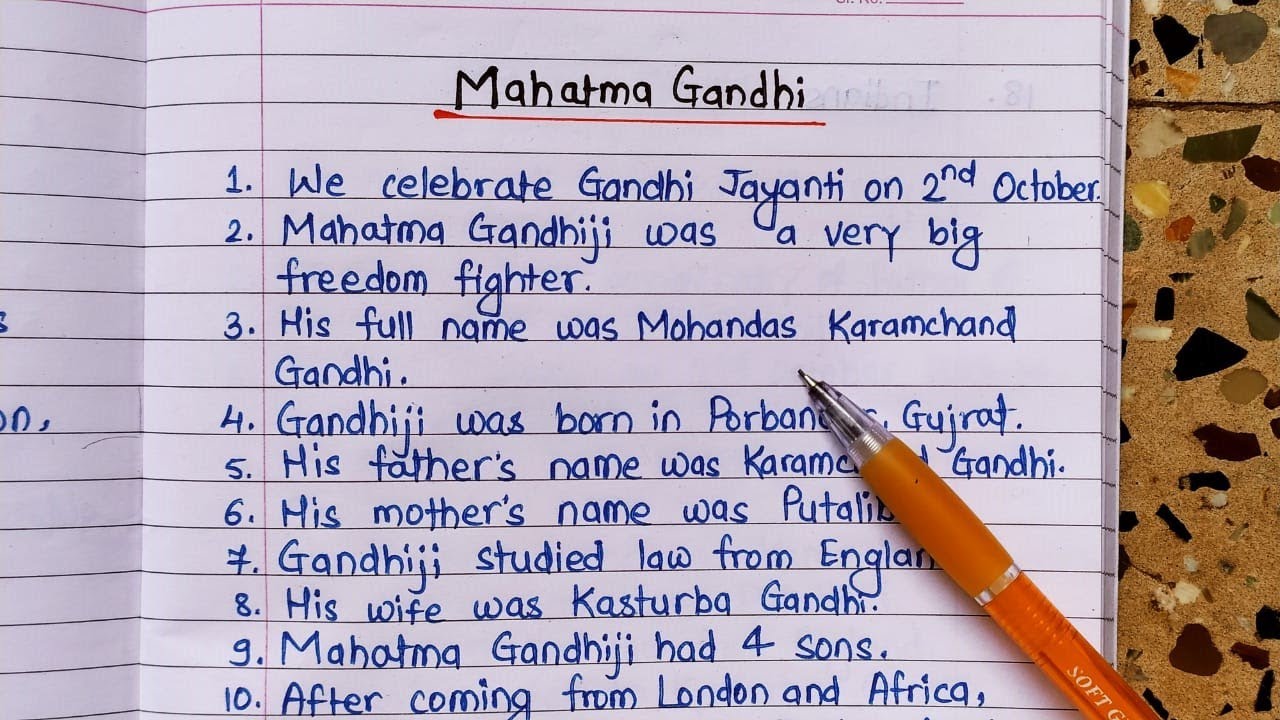 Mahatma Gandhi
1. We celebrate Gandhi Jayanti on 2nd October.
2. Mahatma Gandhiji was a very big
freedom fighter.
3. His full name was Mohandas Karamchand
Gandhi.
on,
4. Gandhiji was born in Gujrat.
5. His father's name was Gandhi.
6. His mother's name was
7. Gandhiji studied law from
8. His wife was Kasturba Gandhi.
9. Mahatma Gandhiji had 4 sons.
10. After coming from London and Africa,
SOFT